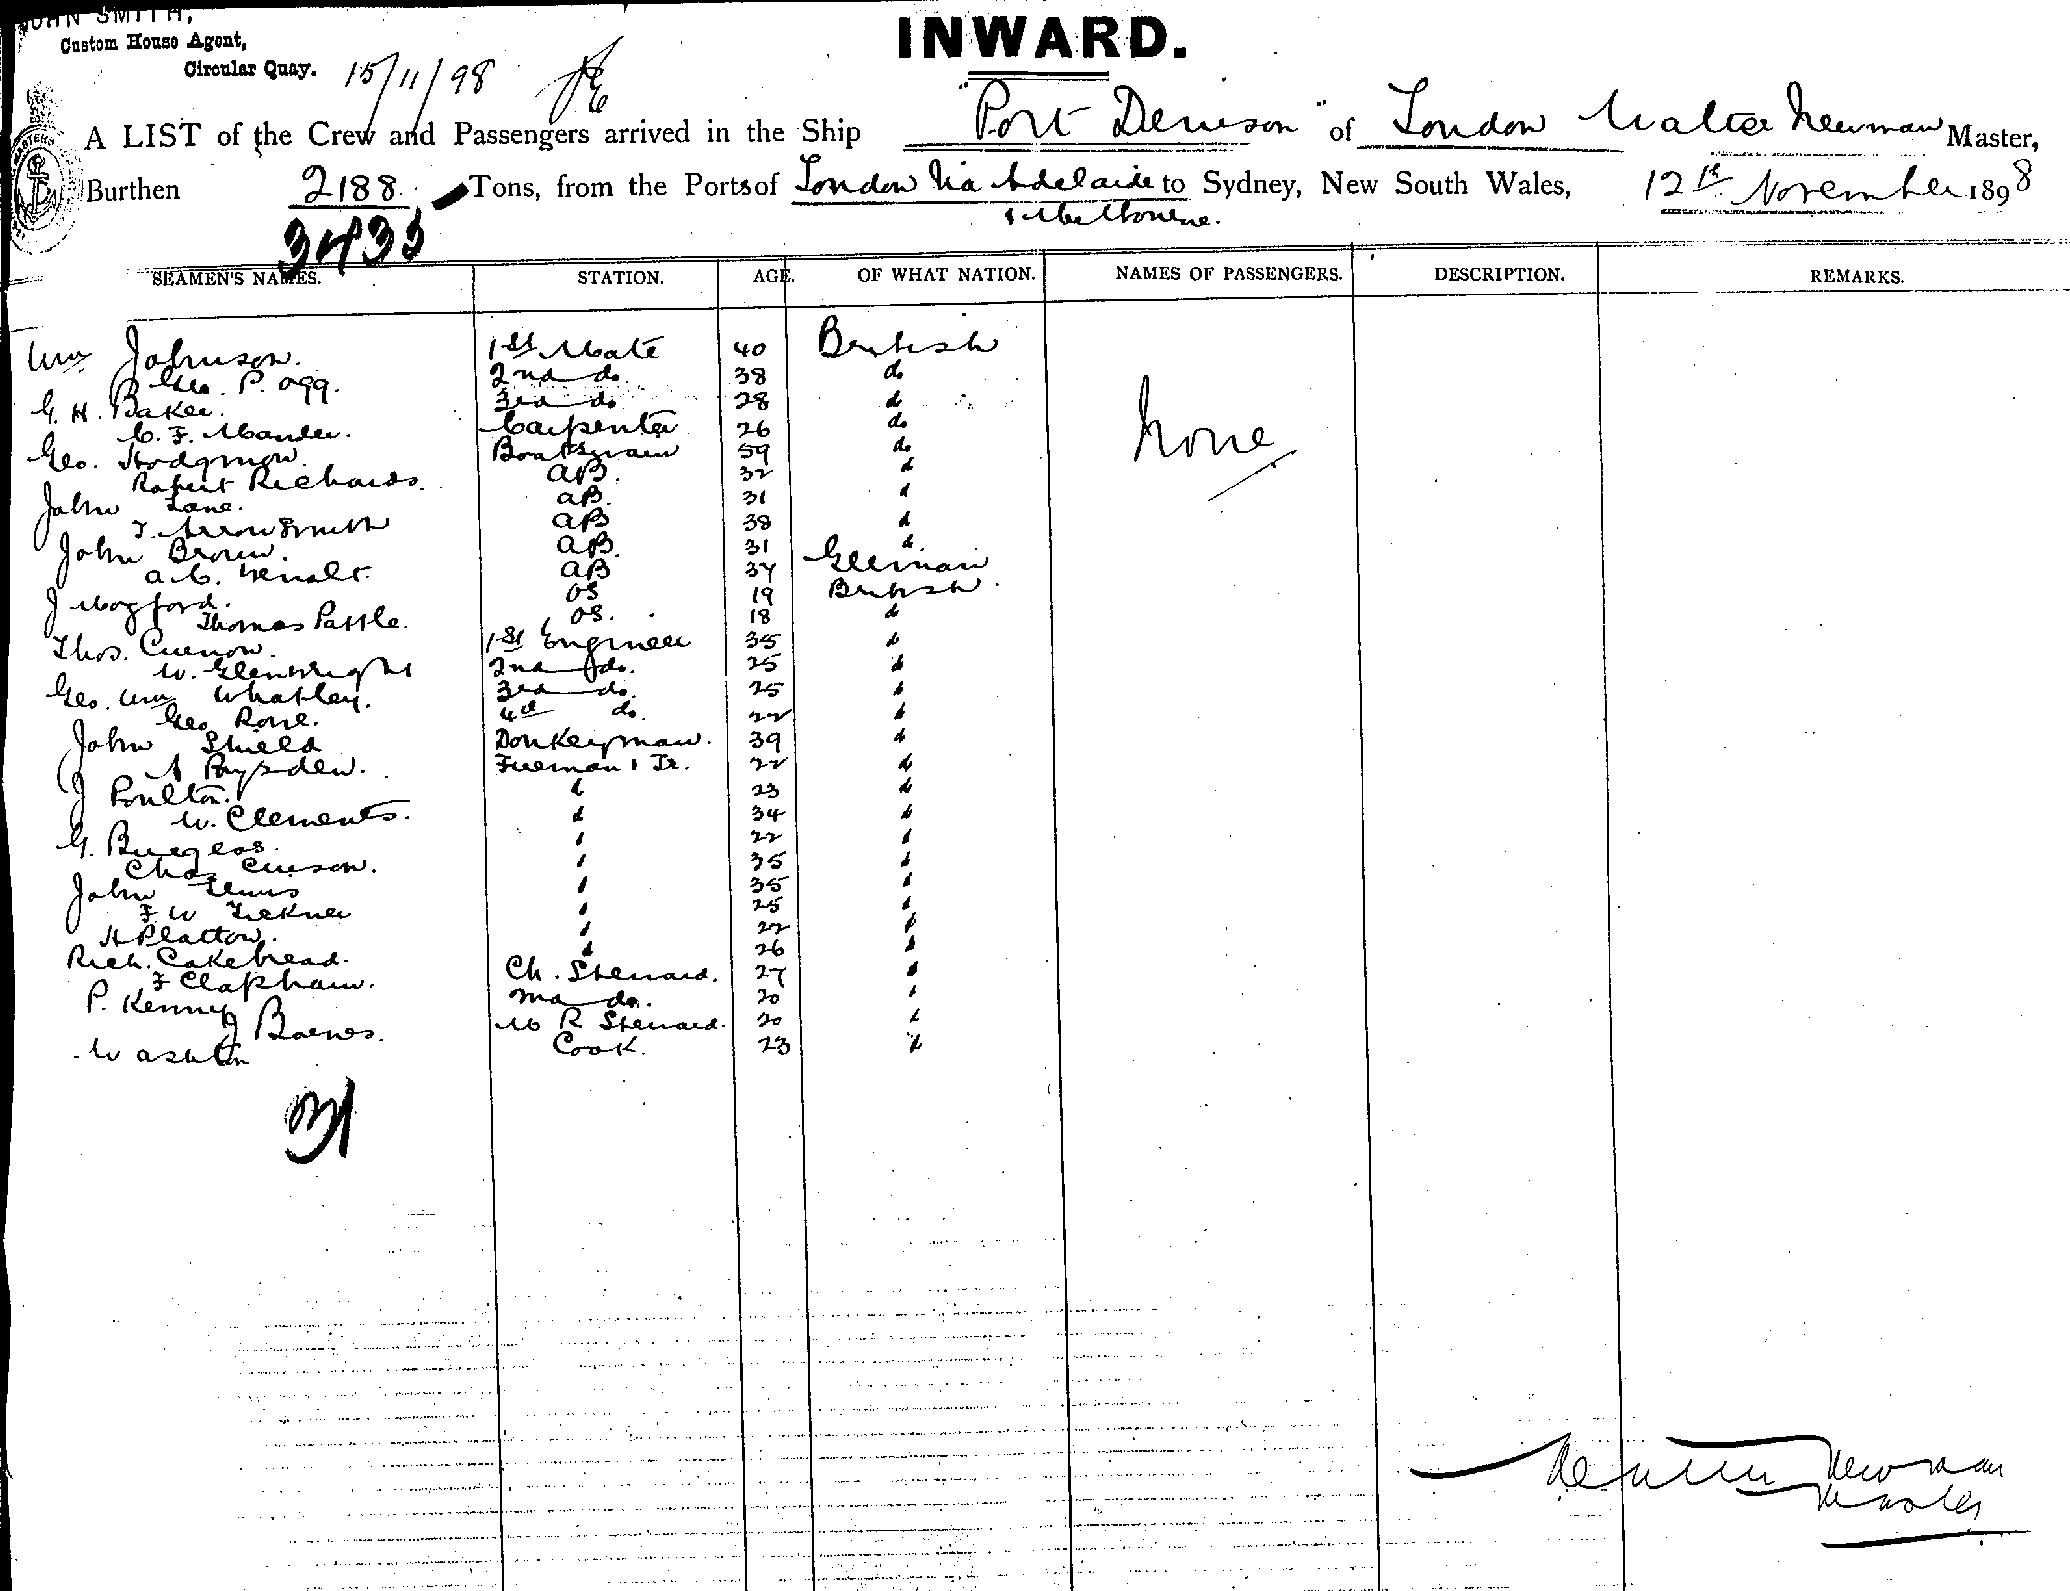 JOHN SMITH,
Custom House Agent,
Circular Quay. 15/11/98
INWARD.
A LIST of the Crew and Passengers arrived in the Ship "Port Denison" of London Walter Newman Master,
Burthen 2188 Tons, from the Ports of London Via Adelaide to Sydney, New South Wales, 12th November 1898
& Melbourne.
3435
SEAMEN'S NAMES. STATION. AGE. OF WHAT NATION. NAMES OF PASSENGERS. DESCRIPTION. REMARKS.
Wm Johnson. 1st Mate 40 British
Geo. P. Ogg. 2nd do 38 do
G. H. Baker. 3rd do 28 do
C. F. Mander. Carpenter 26 do
None
Geo. Hodgmow. Boatswain 59 do
Robert Richards. AB. 32 "
John Lane. AB. 31 "
T. Arrowsmith AB 38 "
John Brown. AB. 31 "
A. C. AB 37 German
J Mogford. OS 19 British
Thomas Pattle. OS. 18 "
Thos. Curnow. 1st Engineer 35 "
W. Glenwright 2nd do. 25 "
Geo. Wm Whatley. 3rd do. 25 "
Geo Rone. 4th do. 22 "
John Shield Donkeyman. 39 "
A Paysden. Fireman & Tr. 22 "
J Poulton. " 23 "
W. Clements. " 34 "
G. Burgess. " 22 "
Chas Curson. " 35 "
John Lewis " 35 "
F W " 25 "
H Platton. " 22 "
Rich. Cakebread. " 26 "
F Clapham. Ch. Steward. 27 "
P. Kenney 2nd do. 20 "
J Barnes. M R Steward. 20 "
W Ashton Cook. 23 "
31
Walter Newman
Master